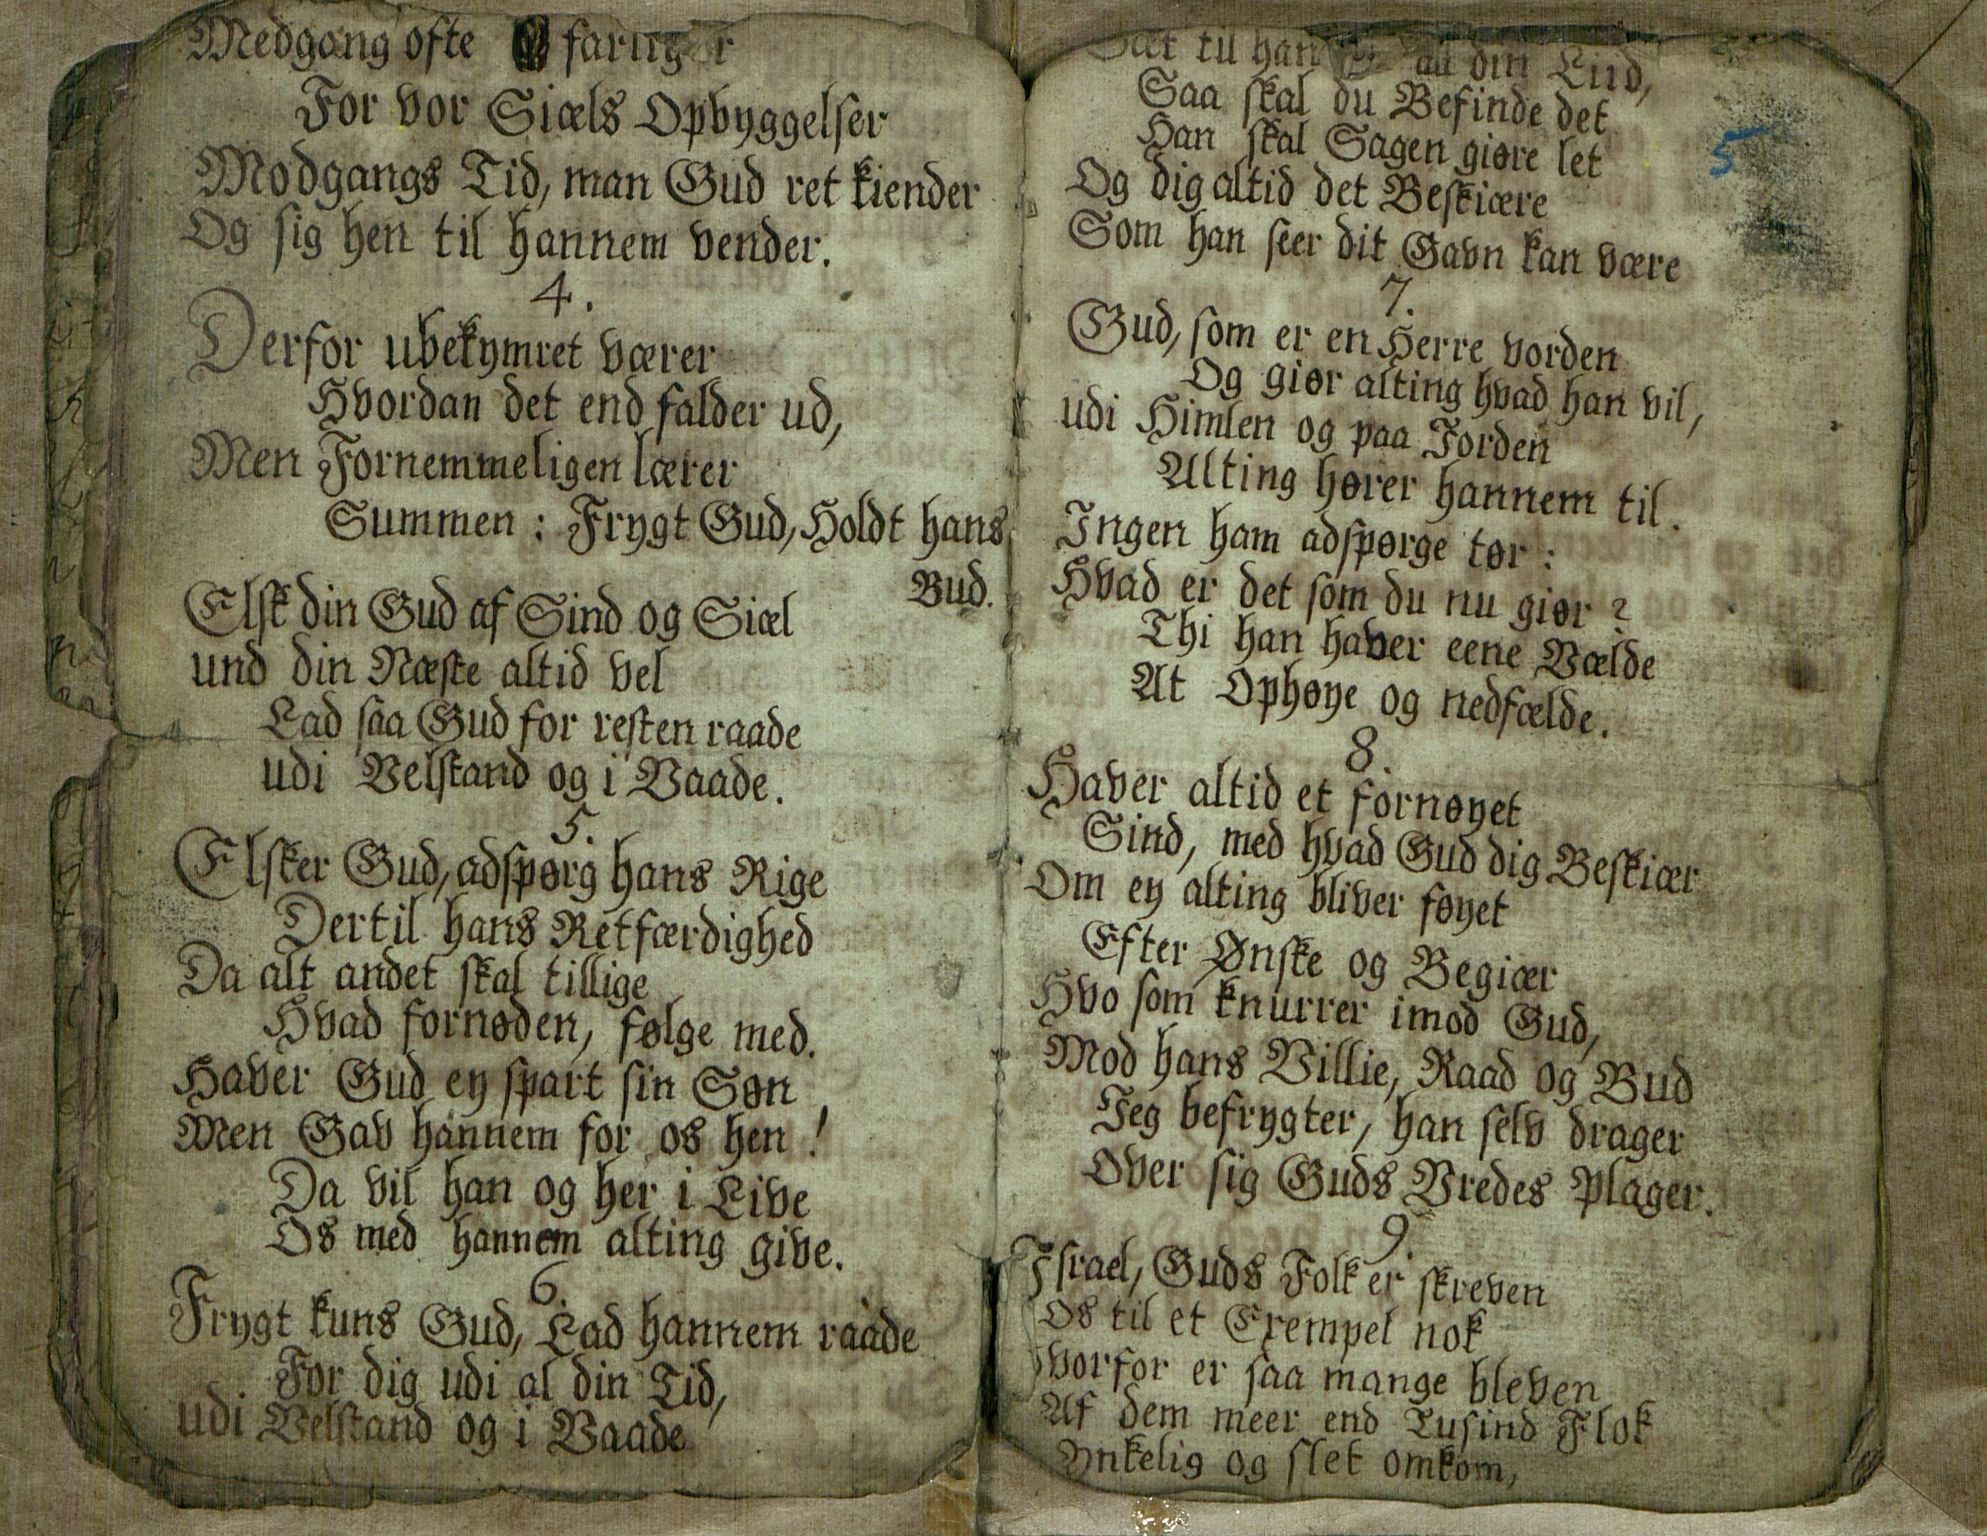 Medgang ofte farliger
For vor Siæls Opbyggelser
Modgangs Tid, man Gud ret kiender
Og sig hen til hannem vender.
4.
Derfor ubekymret værer
Hvordan det end falder ud,
Men Fornemmeligen lærer
Summen : Frygt Gud, Holdt hans
Bud.
Elsk din Gud af Sind og Siæl
und din Næste altid vel
Lad saa Gud for resten raade
udi Velstand og i Vaade.
5.
Elsker Gud, adspørg hans Rige
Dertil hans Retfærdighed
Da alt andet skal tillige
Hvad fornøden, følge med.
Haver Gud ey spart sin Søn
Men Gav hannem for os hen !
Da vil han og her i Live
Os med hannem alting give.
6.
Frygt kuns Gud, Lad hannem raade
For dig udi al din Tid,
udi Velstand og i Vaade
Sæt til han al din Liid,
Saa skal du Befinde det
Han skal Sagen giøre let
Og dig altid det Beskiære
Som han seer dit Gavn kan være
5
7.
Gud, som er en Herre vorden
Og giør alting hvad han vil,
udi Himlen og paa Jorden
Alting hører hannem til.
Ingen ham adspørge tør :
Hvad er det som du nu giør ?
Thi han haver eene Vælde
At Ophøye og nedfælde.
8.
Haver altid et fornøyet
Sind, med hvad Gud dig Beskiær
Om ey alting bliver føyet
Efter Ønske og Begiær
Hvo som knurrer imod Gud,
Mod hans Villie, Raad og Bud
Jeg befrygter, han selv drager
Over sig Guds Vredes Plager.
9.
Israel, Guds Folk er skreven
Os til et Exempel nok
vorfor er saa mange bleven
Af dem meer end Tusind Flok
Ynkelig og slet omkom,